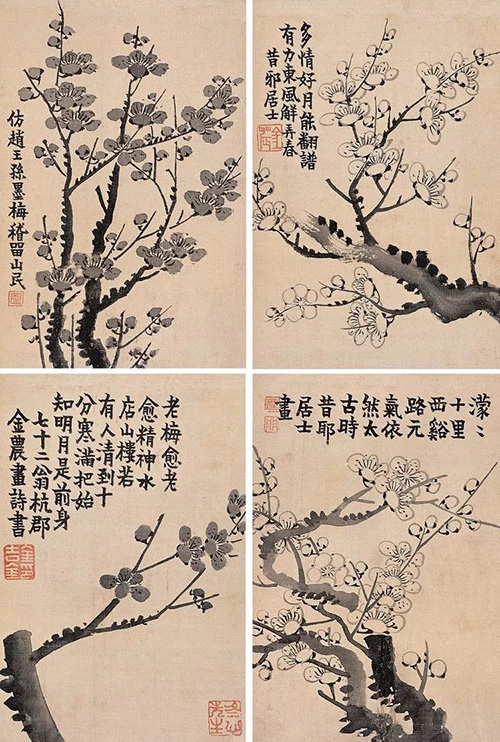 仿趙王孫墨梅稽留山民
多情好月能翻譜
有力東風解弄春
昔邪居士
老梅愈老
愈精神水
店山樓若
有人清到十
分寒滿把始
知明月是前身
七十二翁杭郡
金農畫詩書
金印
吉金
冬心
先生
濛〻
十里
西谿
路元
氣依
然太
古時
昔耶
居士
畫